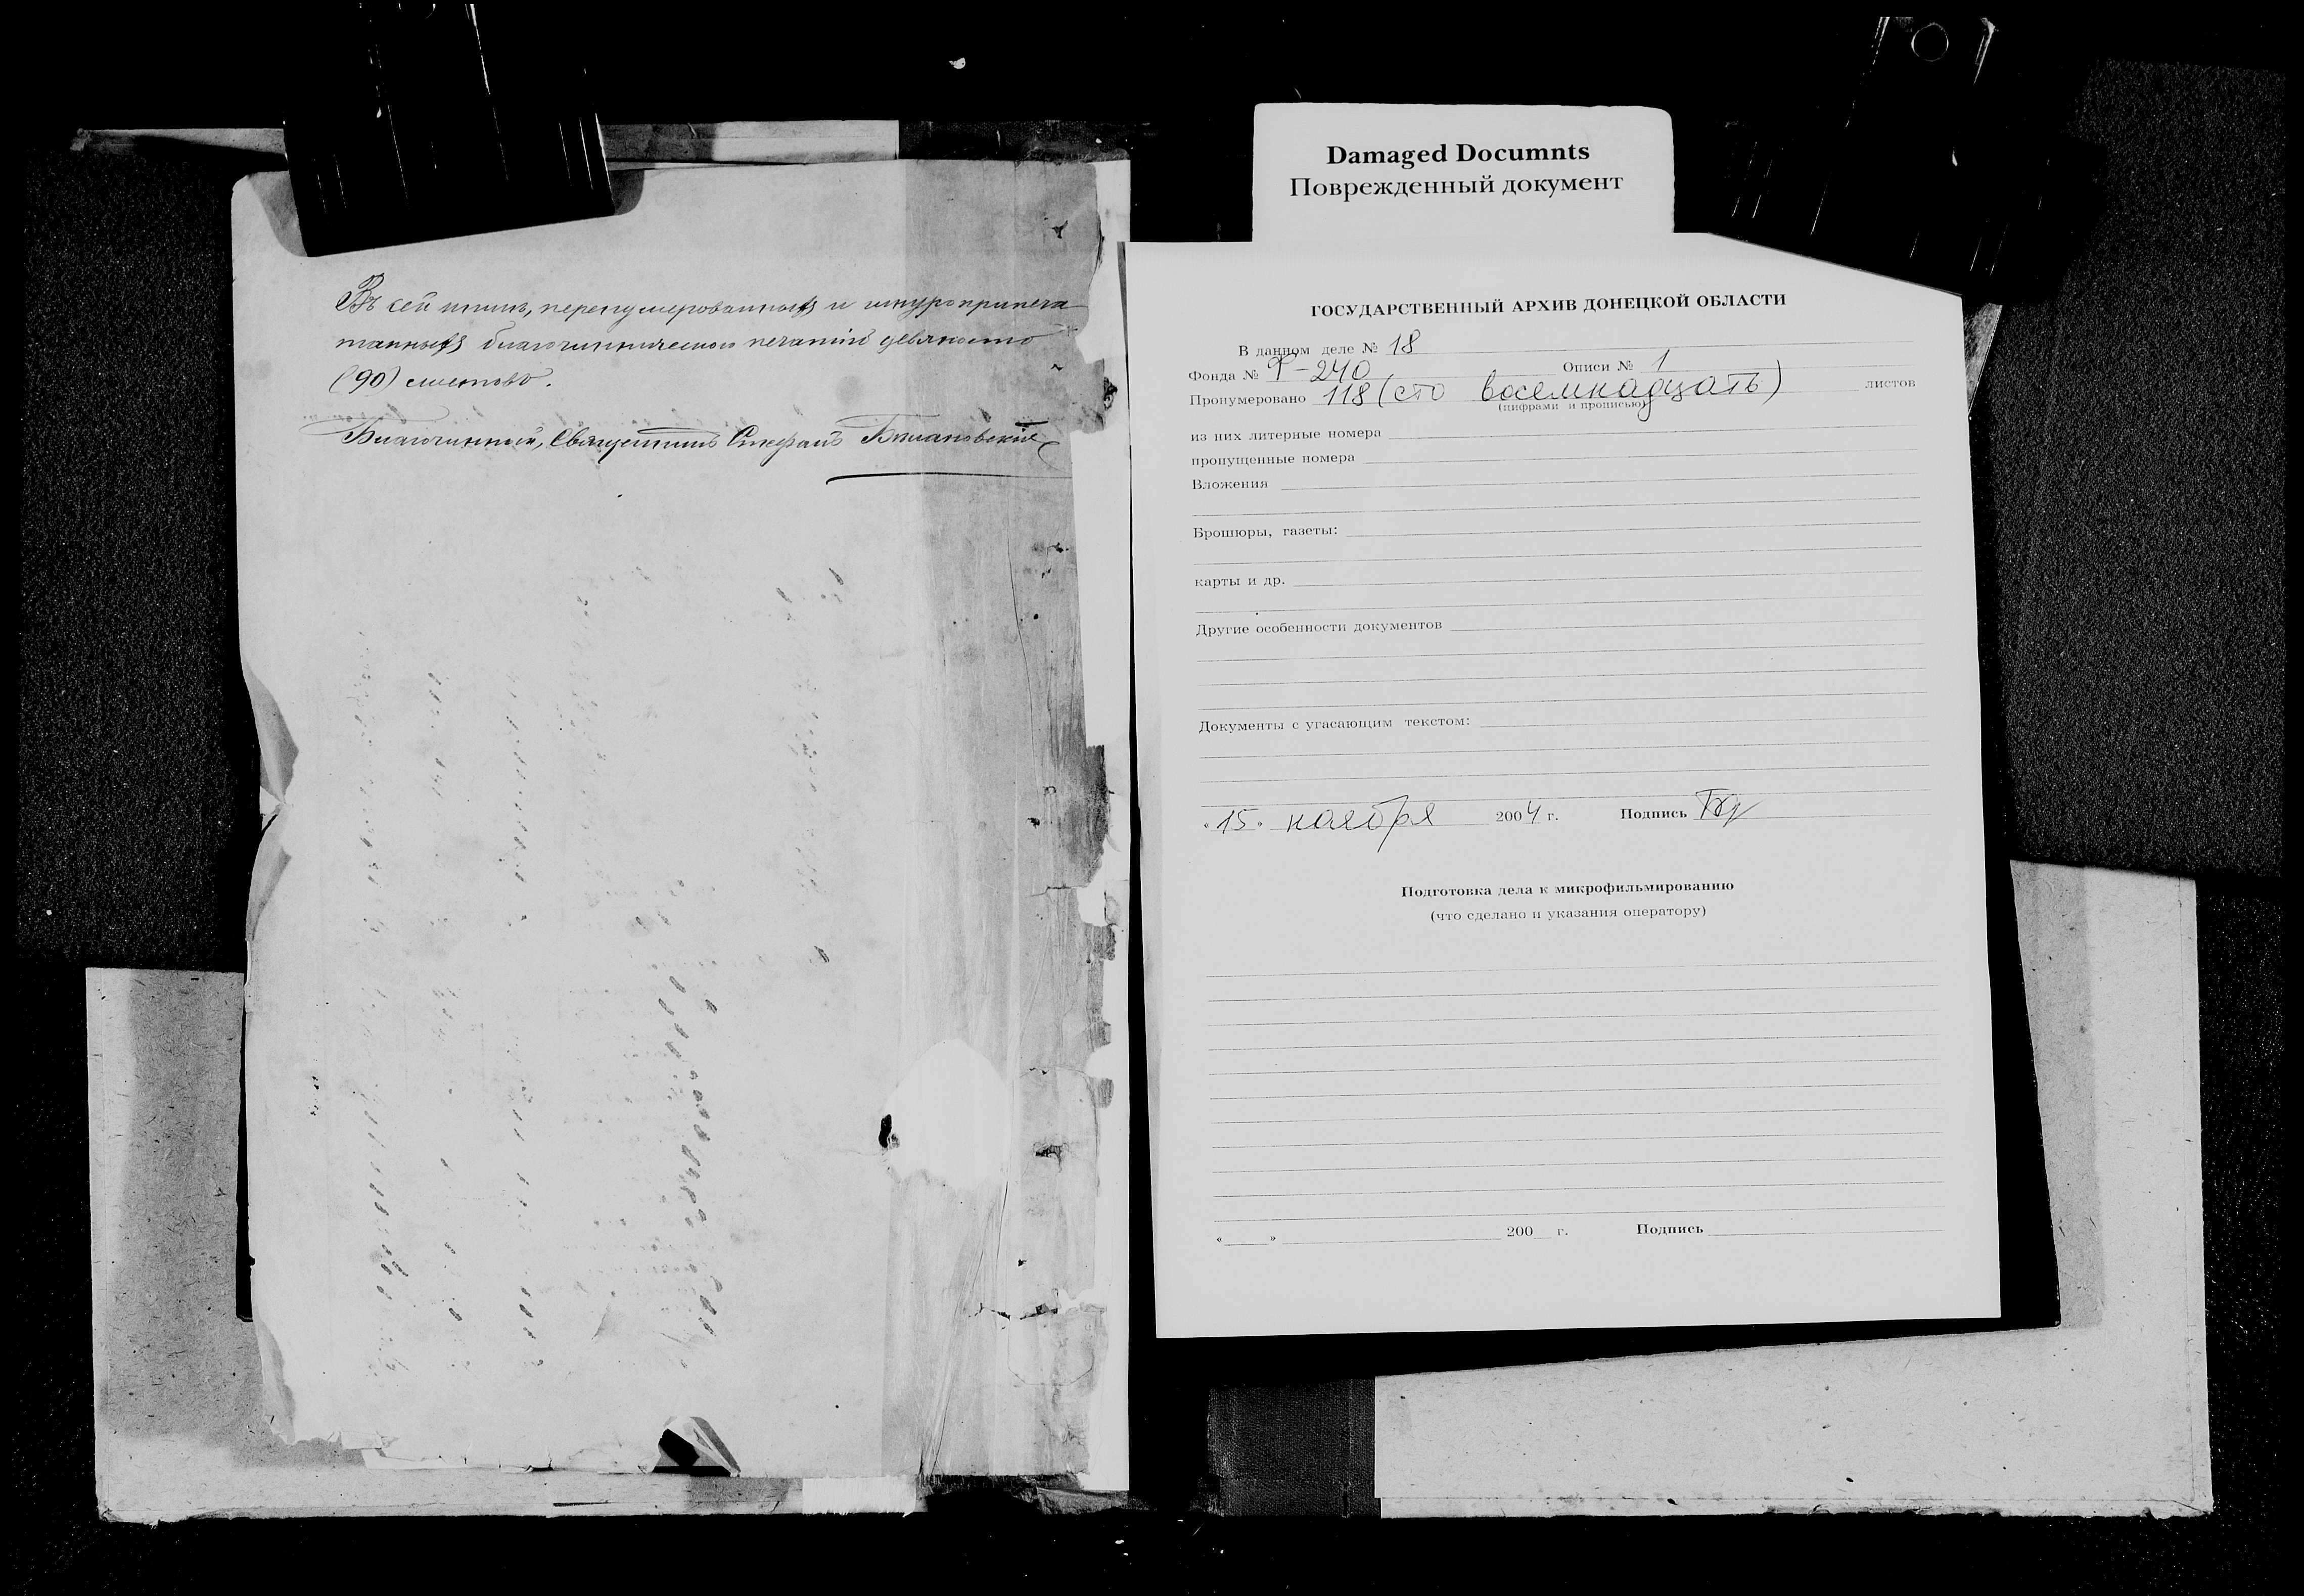 Въ сей книгѣ, перенумерованныхъ и шнуроприпеча
танныхъ благочинническою печатію девяносто
(90) листовъ.
Благочинный, Священникъ Стефанъ
Damaged Documnts
Поврежденный документ
ГОСУДАРСТВЕННЫЙ АРХИВ ДОНЕЦКОЙ ОБЛАСТИ
В данном деле № 18
Фонда № Ф-240 Описи № 1
Пронумеровано 118 (сто восемнадцать) листов
(цифрами и прописью)
из них литерные номера
пропущенные номера
Вложения
Брошюры, газеты:
карты и др.
Другие особенности документов
Документы с угасающим текстом:
«15» ноября 2004 г. Подпись
Подготовка дела к микрофильмированию
(что сделано и указания оператору)
«___» 200__ г. Подпись